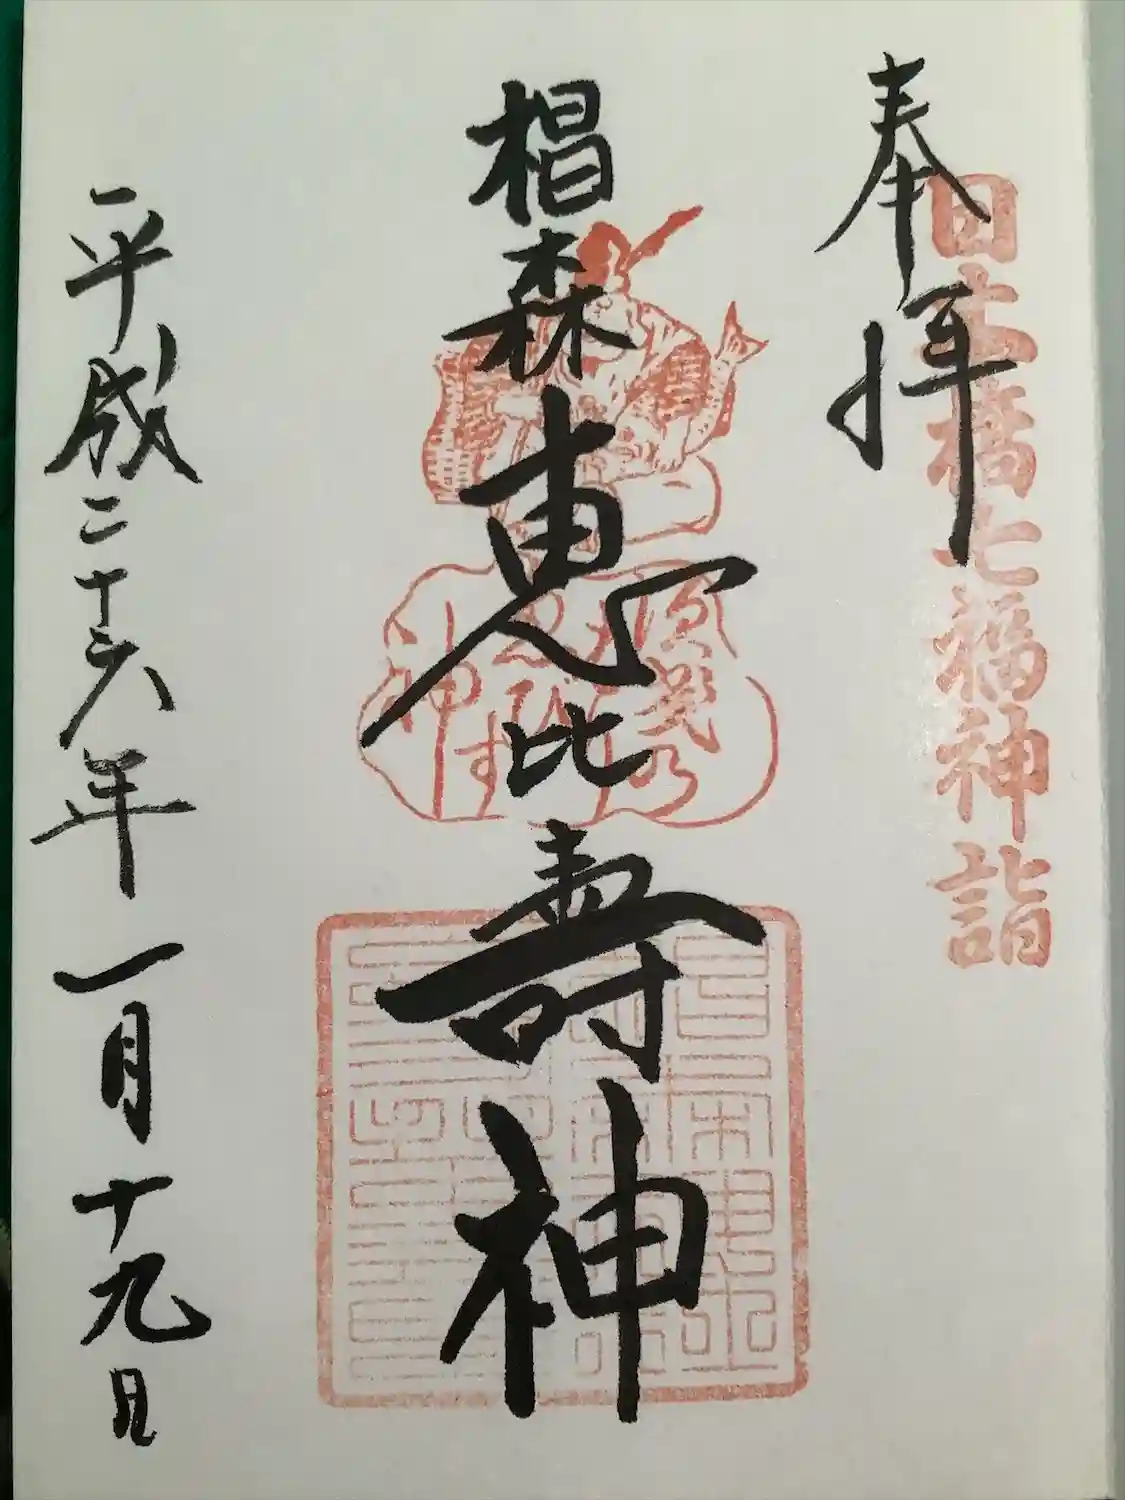 奉拝
日本橋七福神詣
椙森恵比寿神
商売繁
えびす
神
平成二十六年一月十九日